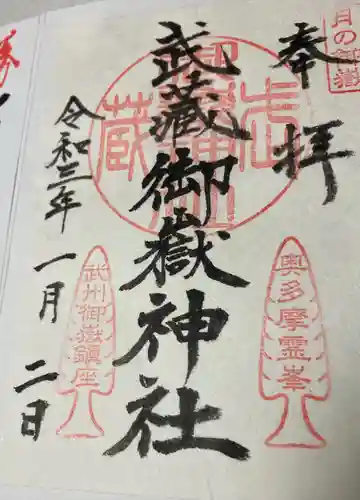 月の御嶽
奉拝
武蔵御嶽神社
令和三年
一月
二日
奥多摩霊峯
武州御嶽鎮座